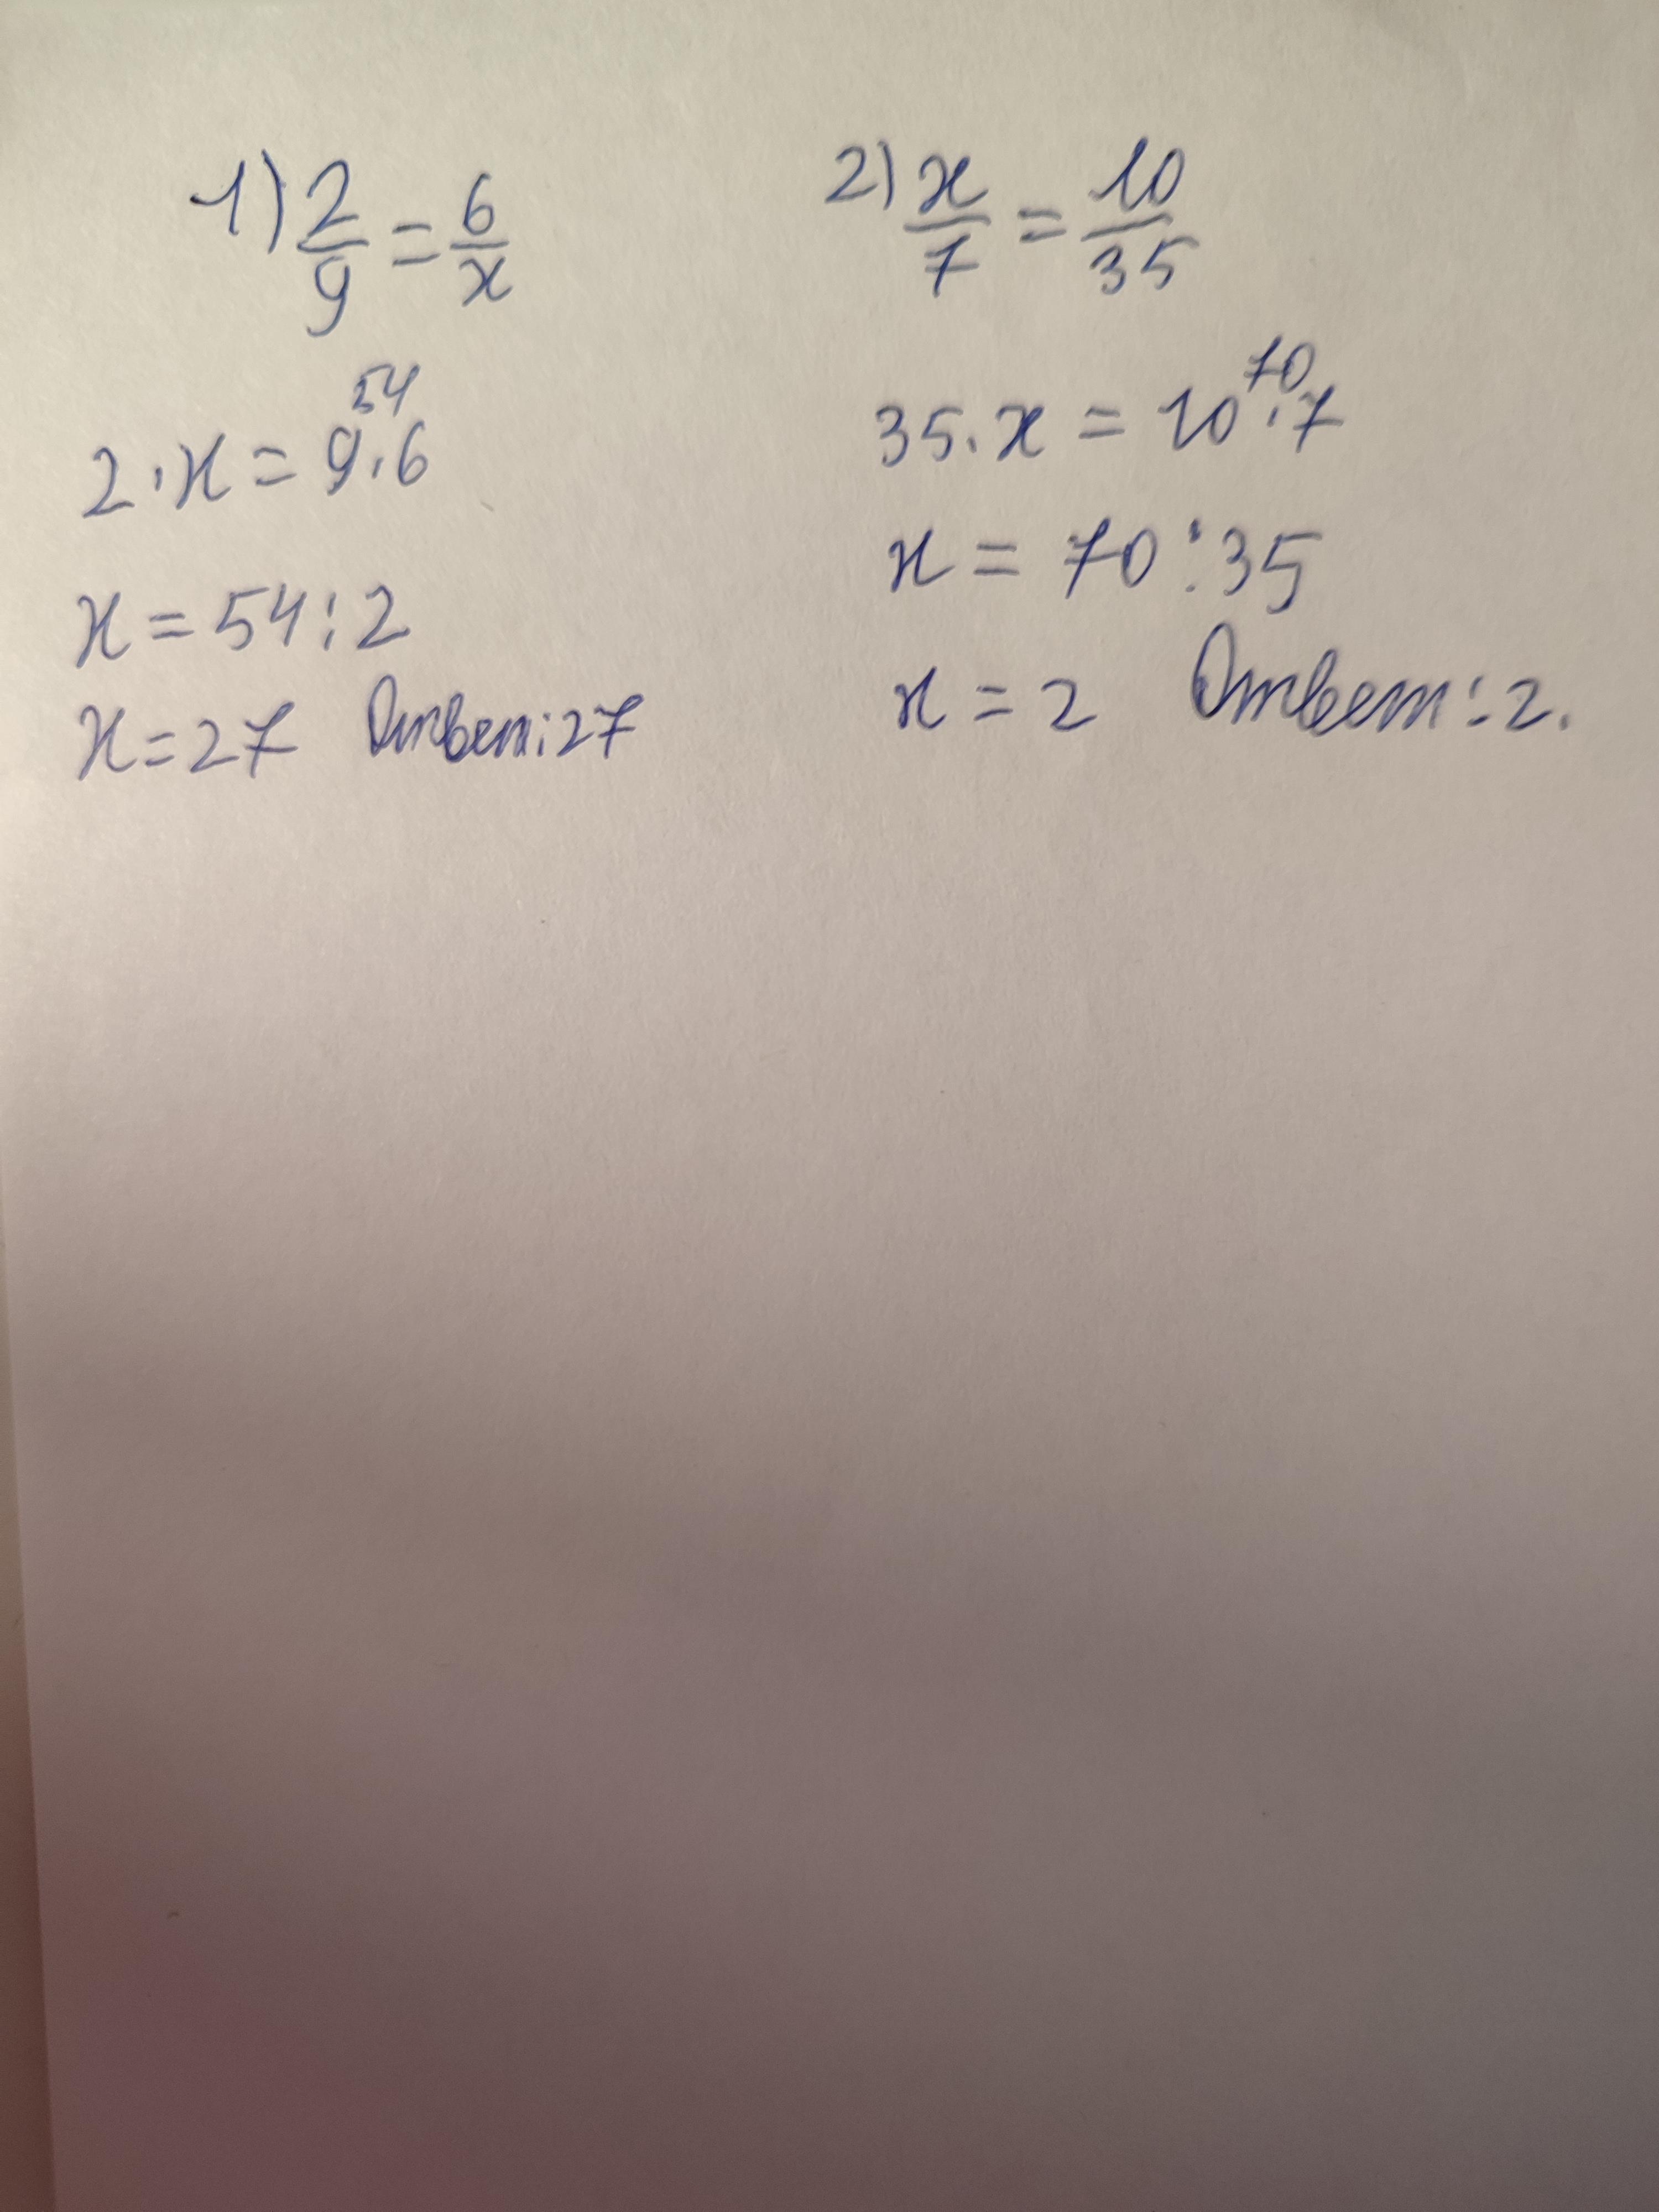 1) 2/9 = 6/x
54
2·x = 9·6
x = 54:2
x = 27 Ответ: 27
2) x/7 = 10/35
70
35·x = 10·7
x = 70:35
x = 2 Ответ: 2.